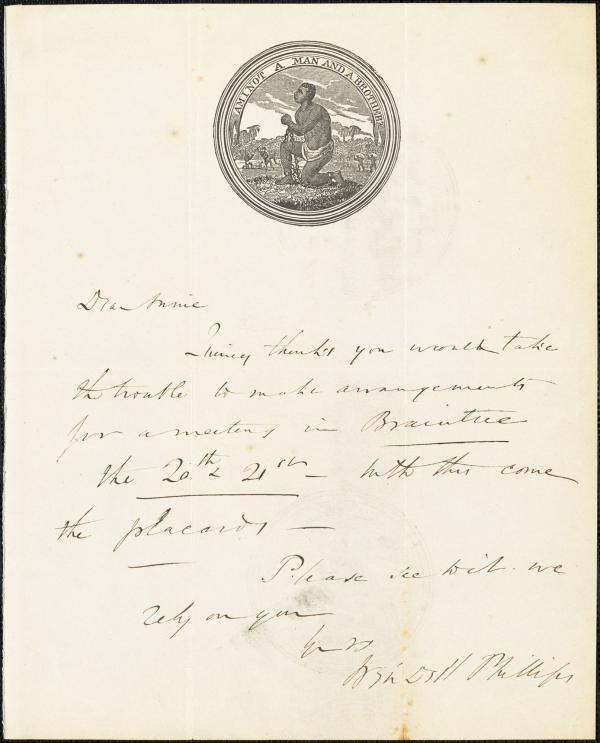 AM I NOT A MAN AND A BROTHER?
Dear Annie
Quincy thinks you would take
the trouble to make arrangements
for a meeting in Braintree
the 20th & 21st – With this come
the placards –
Please see to it. we
rely on you
Yrs
Wendell Phillips